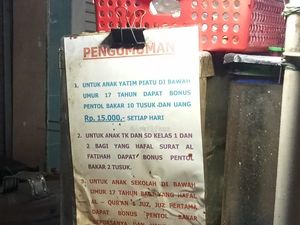 PENGUMUMAN
1. UNTUK ANAK YATIM PIATU DI BAWAH
UMUR 17 TAHUN DAPAT BONUS
PENTOL BAKAR 10 TUSUK DAN UANG
Rp. 15.000,- SETIAP HARI
2. UNTUK ANAK TK DAN SD KELAS 1 DAN
2 BAGI YANG HAFAL SURAT AL
FATIHAH DAPAT BONUS PENTOL
BAKAR 2 TUSUK.
3. UNTUK ANAK SEKOLAH DI BAWAH
UMUR 17 TAHUN BAGI YANG HAFAL
AL - QUR'AN JUZ, JUZ PERTAMA,
DAPAT BONUS PENTOL BAKAR